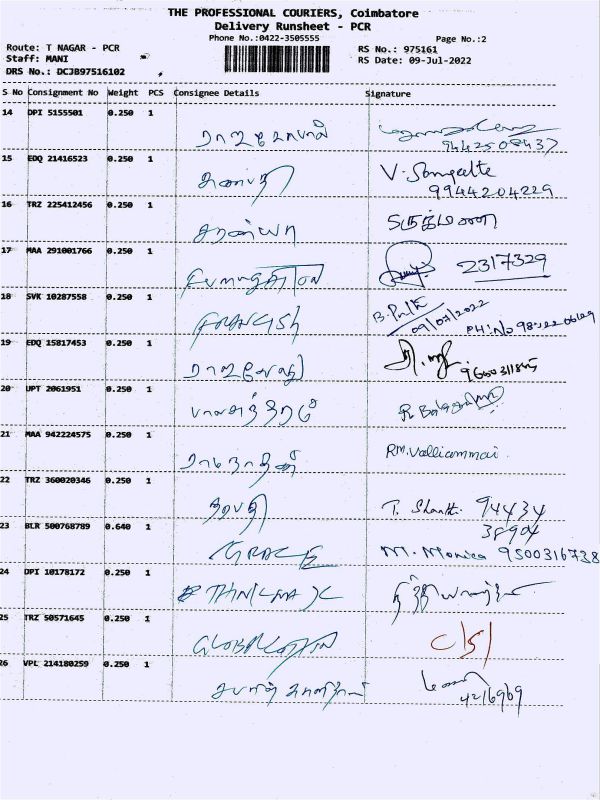 THE PROFESSIONAL COURIERS, Coimbatore
Delivery Runsheet - PCR
Phone No.:0422-3505555
Page No.:2
Route: T NAGAR - PCR
RS No.: 975161
Staff: MANI
RS Date: 09-Jul-2022
DRS No.: DCJB97516102
S No Consignment No Weight PCS Consignee Details Signature
14 DPI 5155501 0.250 1
9442508437
15 EDQ 21416523 0.250 1
கணபதி V. Sangeetha
9944204229
16 TRZ 225412456 0.250 1
சரண்யா ருக்மணி
17 MAA 291001766 0.250 1
Fumigation 2317329
18 SVK 10287558 0.250 1
FRANCISH
09/07/2022
PH: No
19 EDQ 15817453 0.250 1
ராஜவேலு
20 UPT 2061951 0.250 1
பாலசுந்தரம்
21 MAA 942224575 0.250 1
ராமநாதன் RM. Valliammai
22 TRZ 360020346 0.250 1
T. Shanthi 94434
38904
23 BLR 500768789 0.640 1
GRACE M. Monica 9500316738
24 DPI 10178172 0.250 1
THINKMAX
25 TRZ 50571645 0.250 1
26 VPL 214180259 0.250 1
4216969